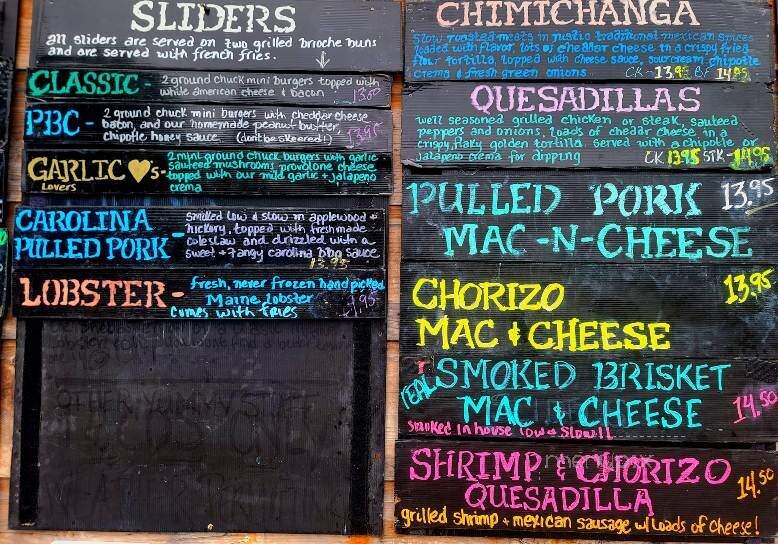 SLIDERS
all sliders are served on two grilled brioche buns
and are served with french fries.
CLASSIC - 2 ground chuck mini burgers topped with
white american cheese & bacon
PBC - 2 ground chuck mini burgers with cheddar cheese
bacon, and our homemade peanut butter,
chipotle honey sauce (don't be skeered!) 13.95
GARLIC ♥'s - 2 mini ground chuck burgers with garlic
Lovers sauteed mushrooms provolone cheese
topped with our mild garlic + jalapeno
crema
CAROLINA
PULLED PORK - smoked low & slow in applewood +
hickory, topped with fresh made
coleslaw and drizzled with a
sweet + tangy carolina bbq sauce
13.95
LOBSTER - fresh, never frozen hand picked
Maine lobster
comes with fries
OTHER YUMMY STUFF
CHIMICHANGA
Slow roasted meats in rustic traditional mexican spices
loaded with flavor, lots of cheddar cheese in a crispy fried
flour tortilla, topped with cheese sauce, sour cream, chipotle
crema & fresh green onions CK - 13.95 BF 14.95
QUESADILLAS
well seasoned grilled chicken or steak, sauteed
peppers and onions, loads of chedar cheese in a
crispy, flaky golden tortilla served with a chipotle or
jalapeno crema for dipping CK 13.95 STK - 14.95
PULLED PORK 13.95
MAC-N-CHEESE
CHORIZO 13.95
MAC & CHEESE
REAL SMOKED BRISKET
MAC & CHEESE 14.50
Smoked in house low & Slow!!
SHRIMP & CHORIZO 14.50
QUESADILLA
grilled shrimp + mexican sausage w/ loads of cheese!